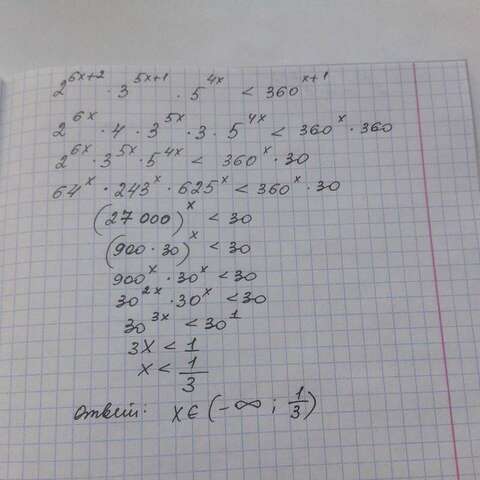 2^{6x+2} · 3^{5x+1} · 5^{4x} < 360^{x+1}
2^{6x} · 4 · 3^{5x} · 3 · 5^{4x} < 360^x · 360
2^{6x} · 3^{5x} · 5^{4x} < 360^x · 30
64^x · 243^x · 625^x < 360^x · 30
(27 000)^x < 30
(900 · 30)^x < 30
900^x · 30^x < 30
30^{2x} · 30^x < 30
30^{3x} < 30^1
3x < 1
x < 1/3
Ответ: x ∈ (-∞ ; 1/3)